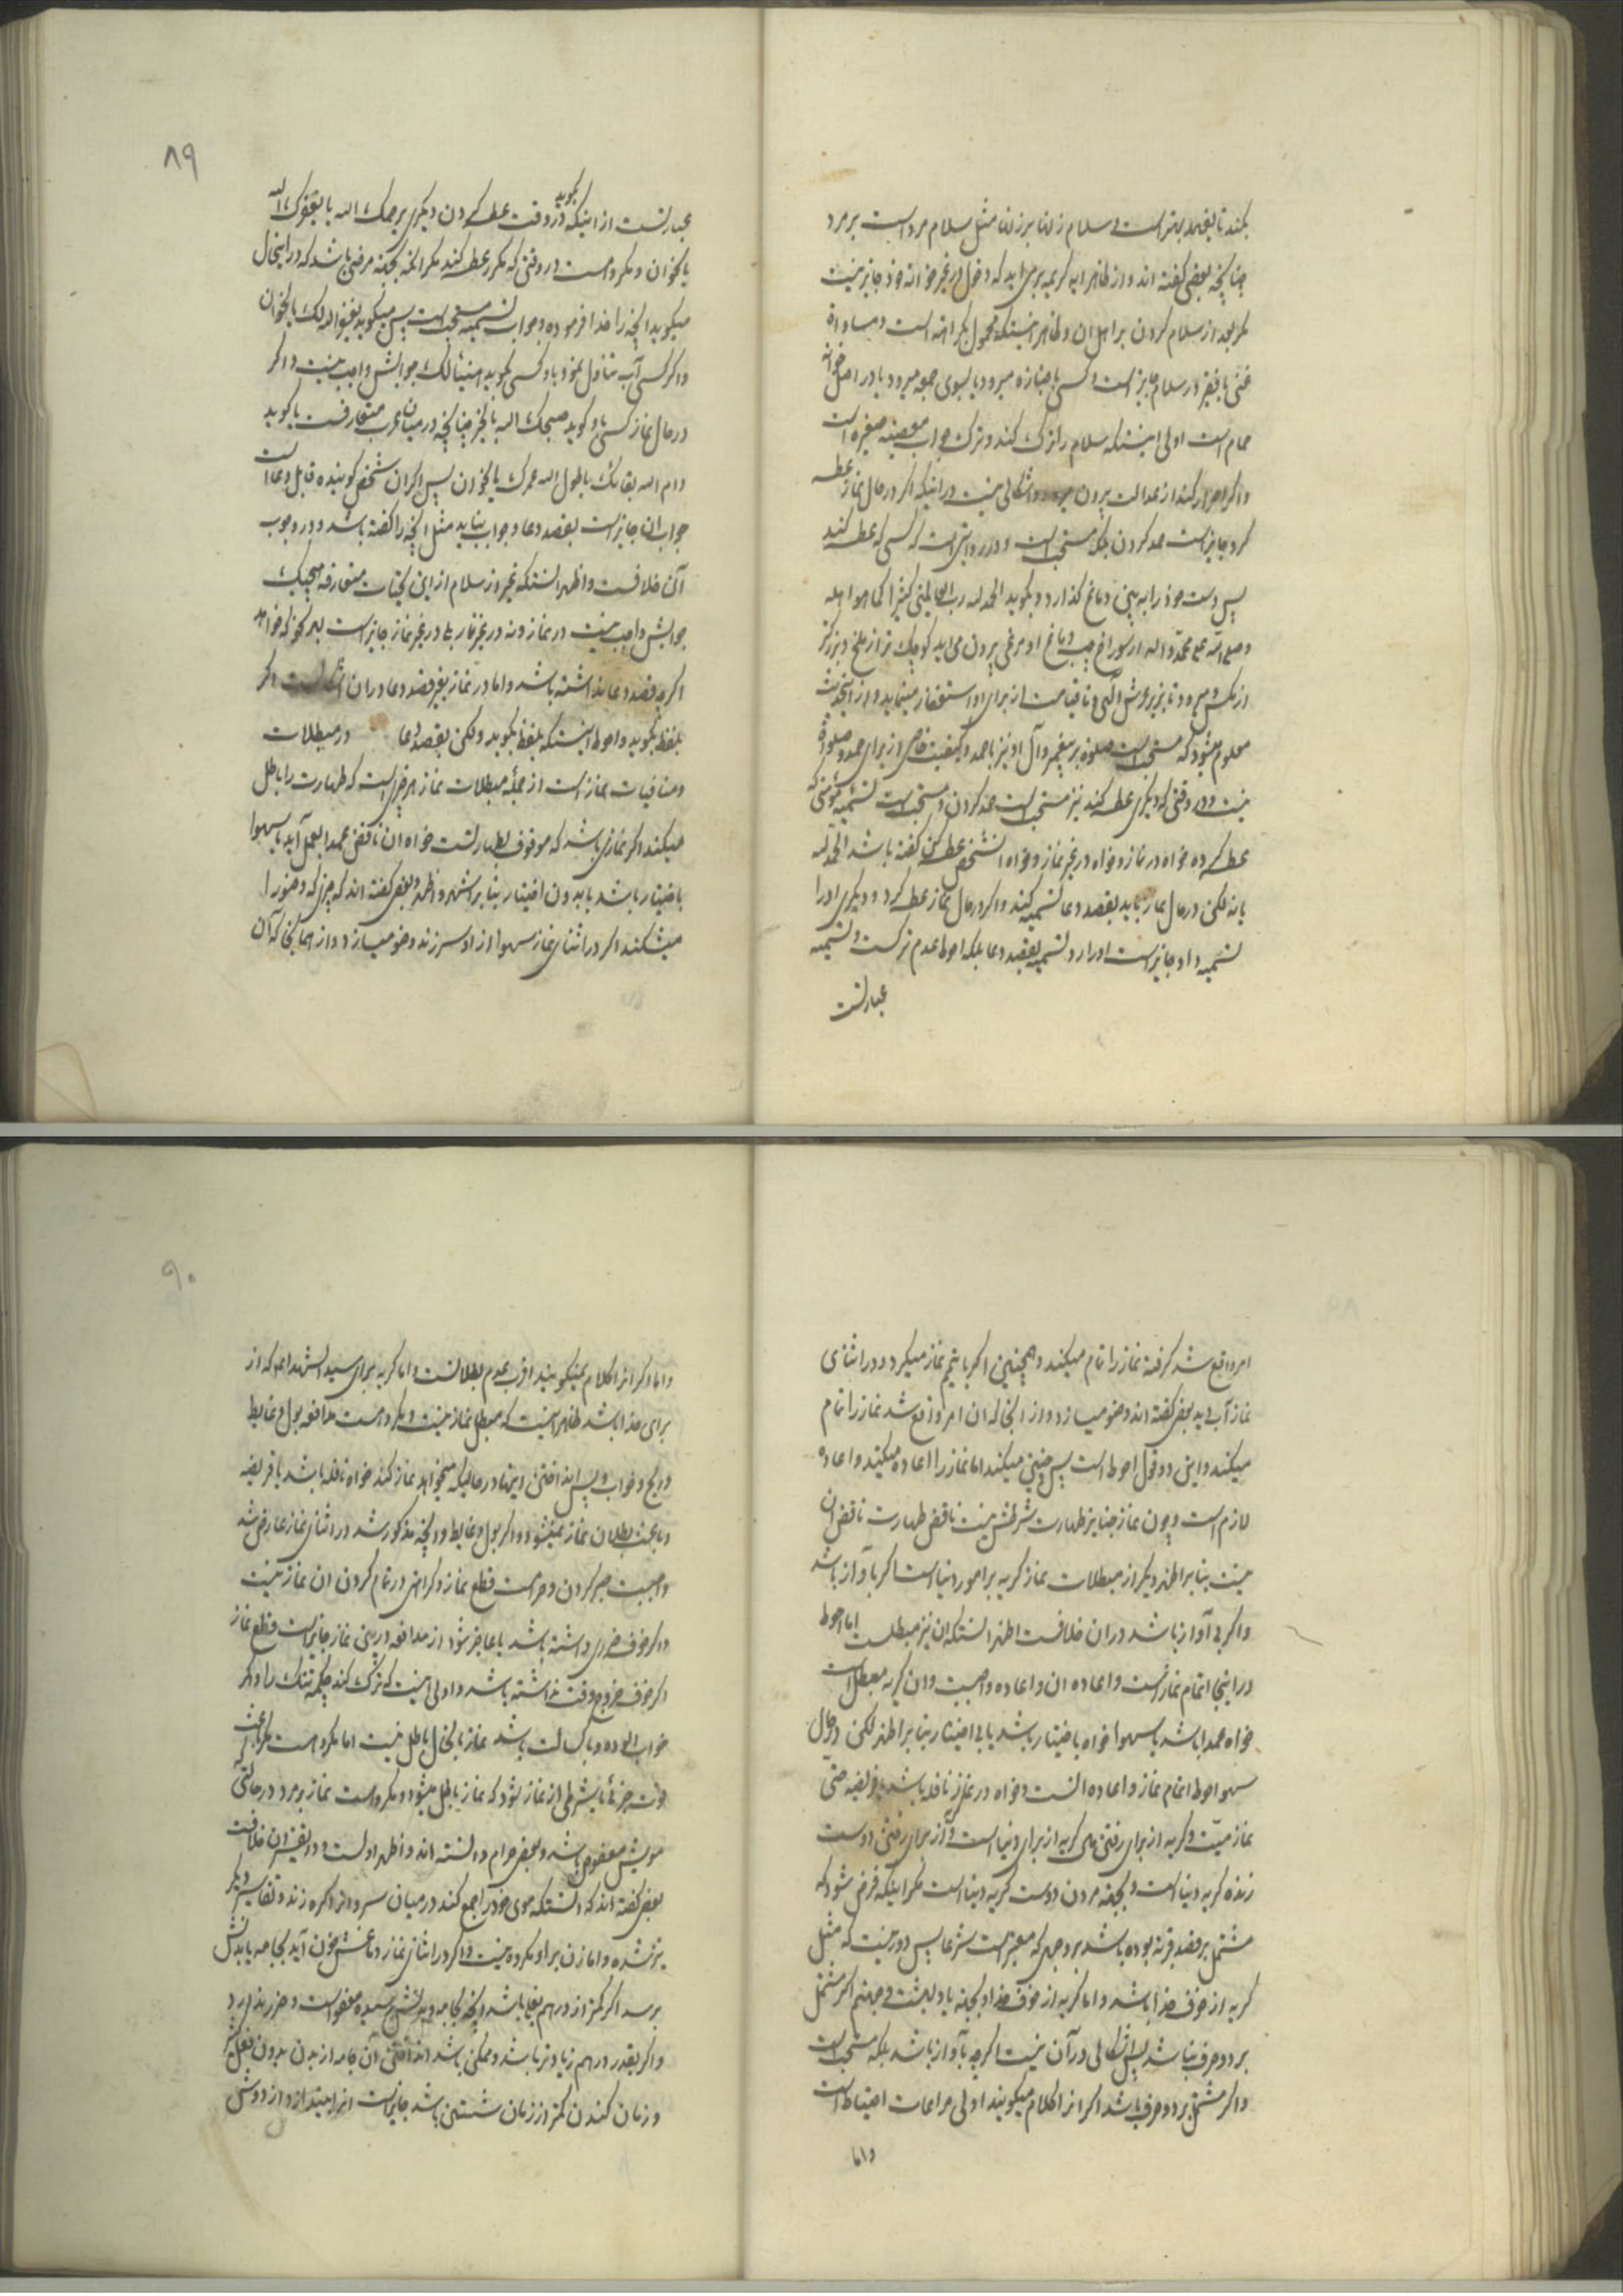 بکنند تا بفهمد بهتر است و سلام زنان بر زنان مثل سلام مرد است بر مرد
چنانچه بعضی گفته اند و از ظاهر ایه کریمه بر می اید که دخول در غیر خانه خود جایز نیست
مگر بعد از سلام کردن بر اهل ان و ظاهر اینستکه محمول بکراهة است و مساواة
غنی با فقیر در سلام جایز است و کسی با جنازه میرود یا بسوی جمعه میرود یا در اصل خانه
حمام است اولی اینستکه سلام را ترک کند و ترک جواب معصیته صغیره است
و اگر اصرار کند از عدالت بیرون میرود و اشکالی نیست در اینکه اگر در حال نماز عطسه
کرد جایز است حمد کردن بلکه مستحب است و در روایتی است که کسی که عطسه کند
پس دست خود را به بینی دماغ گذارد و بگوید الحمد لله رب العالمین کثیرا کما هو اهله
و صلی الله علی محمد و اله از سوراخ چپ دماغ او مرغی بیرون می اید کوچک تر از ملخ و بزرگتر
از مگس و میرود تا بزیر عرش الهی و تا قیامت از برای او استغفار مینماید و از اینحدیث
معلوم میشود که مستحب است صلوة بر پیغمبر و آل او نیز با حمد و کیفیت خاصی از برای حمد و صلوة
نیست و در وقتی که دیگری عطسه کند نیز مستحب است حمد کردن و مستحب است تسمیه مؤمنی که
عطسه کرده خواه در نماز و خواه در غیر نماز و خواه انشخص عطسه کن گفته باشد الحمد لله
یا نه لکن در حال نماز باید بقصد دعا تسمیه کند و اگر در حال نماز عطسه کرد و دیگری او را
تسمیه داد جایز است او را رد تسمیه بقصد دعا بلکه احوط عدم ترکست و تسمیه
عبارتست
۸۹
عبارتست از اینکه بگوید در وقت عطسه کردن دیگری یرحمک الله یا یعفوک الله
یا نحو ان و مکروهست در وقتی که مکرر عطسه کند مگر انکه بجهته مرضی باشد که در اینحال
میگوید انچه را خدا فرموده و جواب تسمیه مستحب است پس میگوید یغفر الله لک یا نحو ان
و اگر کسی آب تناول نمود یا و کسی بگوید هنیئا لک جوابش واجب نیست و اگر
در حال نماز کسی باو گوید صبحک الله بالخیر چنانچه در میان عرب متعارفست یا گوید
دام الله بقائک یا طول الله عمرک یا نحو ان پس اگر ان شخص گوینده قابل دعا است
جواب ان جایز است بقصد دعا و جواب بباید مثل انچه را گفته باشد و در وجوب
آن خلافست و اظهر انستکه غیر از سلام از این تحیات متعارفه هیچیک
جوابش واجب نیست در نماز و نه در غیر نماز بلی در غیر نماز جایز است بهر نحو که خواهد
اگرچه قصد دعا نداشته باشد و اما در نماز بغیر قصد دعا در ان اشکالست اگر
بلفظ بگوید و احوط اینستکه بلفظ بگوید ولکن بقصد دعا در مبطلات
و منافیات نماز است از جمله مبطلات نماز هر چیزی است که طهارت را باطل
میکند اگر نمازی باشد که موقوف بطهارتست خواه ان ناقض عمدا بعمل آید یا سهوا
باختیار باشد یا بدون اختیار بنابر اشهر و اظهر و بعضی گفته اند که چیزی که وضو را
میشکند اگر در اثنای نماز سهوا از او سر زند وضو میسازد و از همانجا که آن
امر واقع شد گرفته نماز را تمام میکند و همچنین اگر با تیمم نماز میکرد و در اثنای
نماز آب دید بعضی گفته اند وضو میسازد و از انجا که ان امر واقع شد نماز را تمام
میکند و این دو قول احوط است پس چنین میکند اما نماز را اعاده میکند و اعاده
لازم است و چون نماز جنایز طهارت شرطش نیست ناقض طهارت ناقض ان
نیست بنابر اظهر و دیگر از مبطلات نماز گریه بر امور دنیا است اگر با آواز باشد
و اگر بی آواز باشد در ان خلافست اظهر انستکه ان نیز مبطلست اما احوط
در اینجا اتمام نماز است و اعاده ان و اعاده واجبست و ان گریه مبطل است
خواه عمدا باشد یا سهوا خواه باختیار باشد یا بی اختیار بنابر اظهر لکن در حال
سهو احوط اتمام نماز و اعاده انست و خواه در نماز نافله باشد یا فریضه حتی
نماز میت و گریه از برای رفتن مال گریه از برای دنیا است و از برای رفتن دوست
زنده گریه دنیا است و بجهته مردن دوست گریه دنیا است مگر اینکه فرض شود که
مشتمل بر قصد قربة بوده باشد بر وجهی که معتبر است شرعا پس دور نیست که مثل
گریه از خوف خدا باشد و اما گریه از خوف خدا و بجهته یاد بهشت و جهنم اگر مشتمل
بر دو حرف نباشد پس اشکالی در آن نیست اگرچه با آواز باشد بلکه مستحب است
و اگر مشتمل بر دو حرف باشد اگر انرا کلام میگویند اولی مراعات احتیاط است
و اما
۹۰
و اما اگر انرا کلام نمیگویند اقرب عدم بطلانست و اما گریه برای سید الشهداء ع که از
برای خدا باشد ظاهر اینست که مبطل نماز نیست و مکروهست مدافعه بول و غایط
و ریح و خواب و پس انداختن اینها در حالیکه میخواهد نماز کند خواه نافله باشد یا فریضه
و باعث بطلان نماز نمیشود و اگر بول و غایط و انچه مذکور شد در اثنای نماز عارض شد
واجبست صبر کردن و حرامست قطع نماز و کراهتی در تمام کردن ان نماز نیست
و اگر خوف ضرری داشته باشد یا عاجز شود از مدافعه در بین نماز جایز است قطع نماز
اگر خوف خروج وقت نداشته باشد و اولی اینست که ترک کند چکمه تنک را و اگر
خواب الوده و با کسالت باشد نماز با انحال باطل نیست اما مکروهست مگر باعث
فوت جزئی یا شرطی از نماز شود که نماز باطل میشود و مکروهست نماز بر مرد در حالتی که
مویش معقوص باشد و بعضی حرام دانسته اند و اظهر اولست و در تفسیر ان خلافست
بعضی گفته اند که انستکه موی خود را جمع کند در میان سر و انرا گره زند و تفاسیر دیگر
نیز شده و اما زن بر او مکروه نیست و اگر در اثنای نماز دماغش خون آید بجامه یا بدنش
برسد اگر کمتر از درهم بغلی باشد انچه بجامه و بدنش رسیده معفو است و ضرر ندارد
و اگر بقدر درهم یا زیادتر باشد و ممکن باشد انداختن آن جامه از بدن بدون فعل کثیر
و زمان کندن کمتر از زمان شستن باشد جایز است انرا بیندازد از دوش